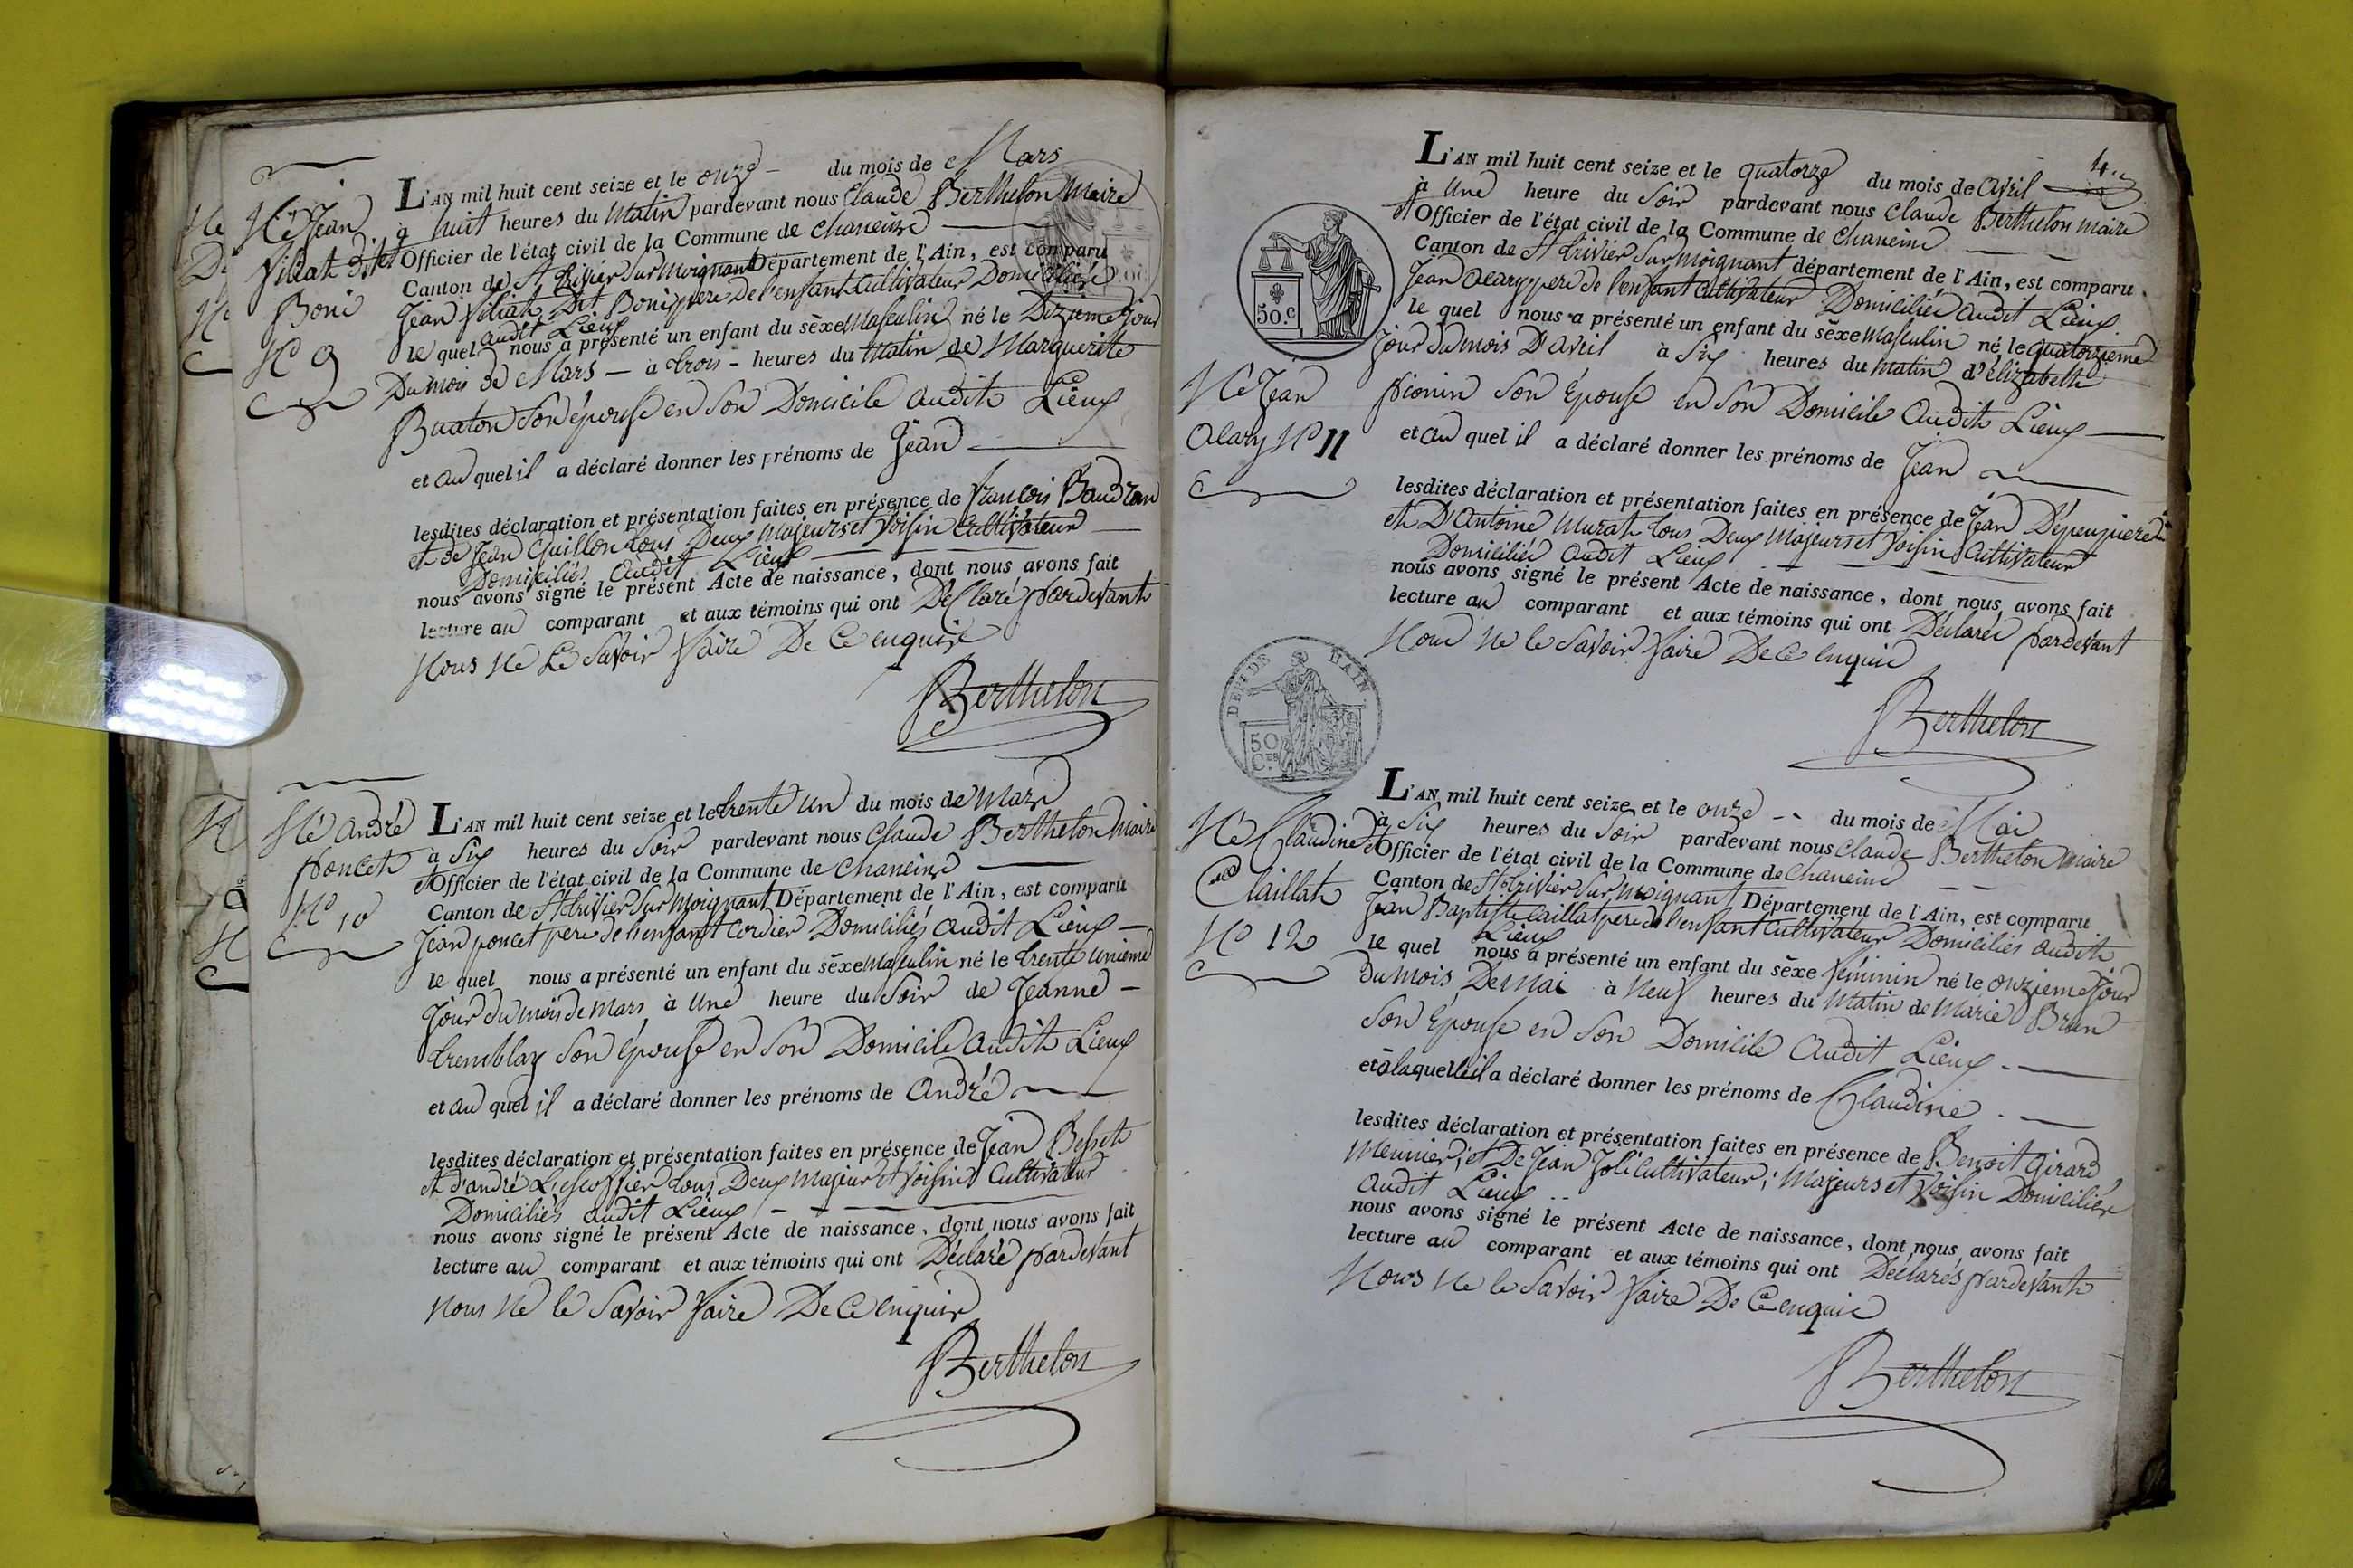 Né Jean
Viliat dit
Boni
N° 9
L'AN mil huit cent seize et le onze du mois de Mars
à huit heures du Matin pardevant nous Claude Berthelon Maire
et Officier de l'état civil de la Commune de chaneins
Canton de St trivier Sur Moignant Département de l'Ain, est comparu
Jean Viliat Dit Boni pere De l'enfant Cultivateur Domicilié
audit Lieux
le quel nous a présenté un enfant du sèxe Masculin né le Dizieme jour
Du mois de Mars — à trois - heures du Matin de Marguerite
Buaton Son épouse en Son Domicile audit Lieux
et au quel il a déclaré donner les prénoms de Jean
lesdites déclaration et présentation faites en présence de francois Baudran
et de Jean Guillon tous Deux Majeurs et Voisin Cultivateur
Domiciliés audit Lieux
nous avons signé le présent Acte de naissance, dont nous avons fait
lecture au comparant et aux témoins qui ont Declaré pardevant
Nous Ne Le Savoir faire De Ce enquise
Berthelon
Né andré
poncet
N° 10
L'AN mil huit cent seize et le trente un du mois de Mars
à Six heures du Soir pardevant nous Claude Berthelon Maire
et Officier de l'état civil de la Commune de chaneins
Canton de St trivier Sur Moignant Département de l'Ain, est comparu
Jean poncet pere de l'enfant Cordier Domiciliés audit Lieux —
le quel nous a présenté un enfant du sèxe Masculin né le trente unieme
Jour du mois de Mars à Une heure du Soir de Jeanne —
tremblay Son épouse en Son Domicile audit Lieux
et au quel il a déclaré donner les prénoms de andré
lesdites déclaration et présentation faites en présence de Jean Besset
et d'andré Lescoffier tous Deux Majeur et Voisin Cultivateur
Domiciliés audit Lieux
nous avons signé le présent Acte de naissance, dont nous avons fait
lecture au comparant et aux témoins qui ont Déclaré pardevant
Nous Ne le Savoir faire De Ce enquis
Berthelon
4.
50.c
Né Jean
alary N° 11
L'AN mil huit cent seize et le quatorze du mois de avril
à Une heure du Soir pardevant nous Claude Berthelon maire
et Officier de l'état civil de la Commune de Chaneins
Canton de St trivier Sur moignant département de l'Ain, est comparu
Jean alary pere de l'enfant Cultivateur Domicilié audit Lieux
le quel nous a présenté un enfant du sèxe Masculin né le quatorzieme
Jour du mois D'avril à Six heures du Matin d'Elizabeth
pionin Son Épouse en Son Domicile Audit Lieux
et au quel il a déclaré donner les prénoms de Jean
lesdites déclaration et présentation faites en présence de Jean
et D'Antoine Murat tous Deux Majeurs et Voisin Cultivateur
Domiciliés audit Lieux
nous avons signé le présent Acte de naissance, dont nous avons fait
lecture au comparant et aux témoins qui ont Déclarés pardevant
Nous Ne le Savoir faire De Ce enquis
Berthelon
DEP. DE L'AIN
50 C.es
Né Claudine
Caillat
N° 12
L'AN mil huit cent seize et le onze du mois de Mai
à Six heures du Soir pardevant nous Claude Berthelon Maire
et Officier de l'état civil de la Commune de Chaneins
Canton de St trivier Sur Moignant Département de l'Ain, est comparu
Jean Baptiste Caillat pere de l'enfant Cultivateur Domiciliés audit
Lieux
le quel nous a présenté un enfant du sèxe féminin né le onzieme Jour
Du mois De Mai à Neuf heures du Matin de Marie Brun
Son Épouse en Son Domicile Audit Lieux
et à laquelle il a déclaré donner les prénoms de Claudine
lesdites déclaration et présentation faites en présence de Benoit Girard
Meunier, et De Jean Joli Cultivateur, Majeurs et Voisin Domiciliés
Audit Lieux
nous avons signé le présent Acte de naissance, dont nous avons fait
lecture au comparant et aux témoins qui ont Déclarés pardevant
Nous Ne le Savoir faire De Ce enquis
Berthelon